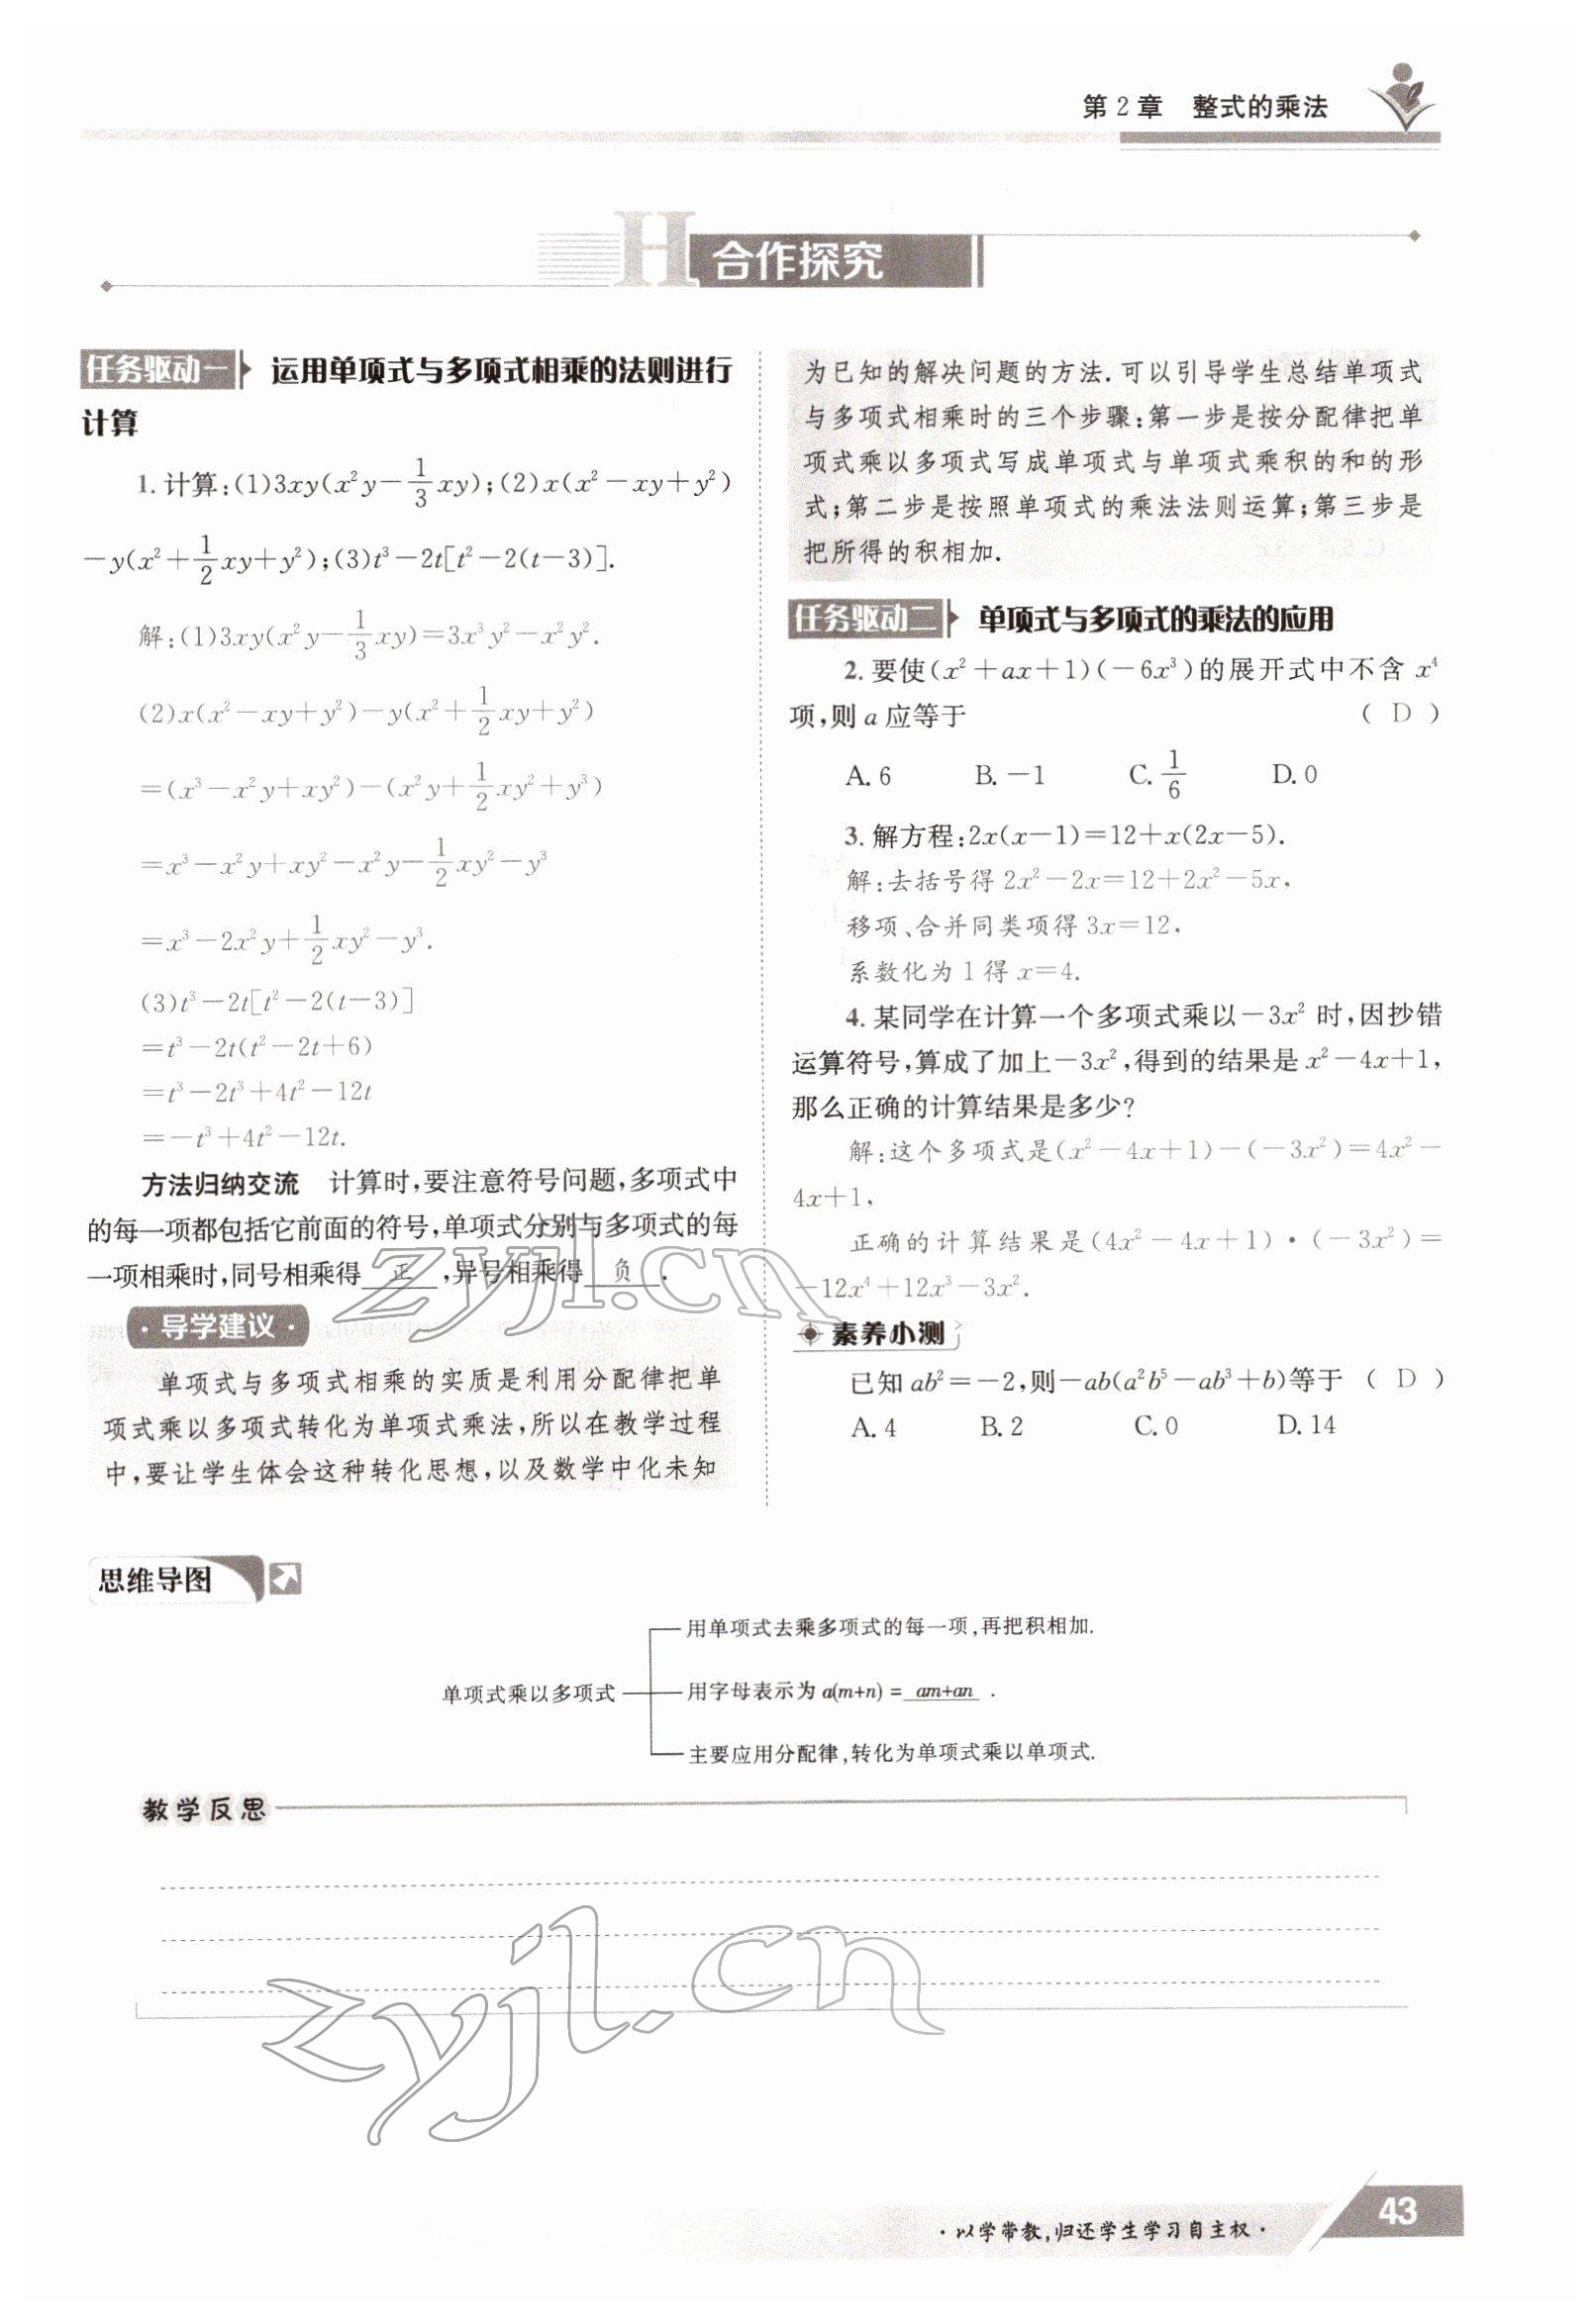 第2章 整式的乘法
H 合作探究
任务驱动一 运用单项式与多项式相乘的法则进行
计算
1. 计算:(1)3xy(x²y-1/3xy);(2)x(x²-xy+y²)
-y(x²+1/2xy+y²);(3)t³-2t[t²-2(t-3)].
解:(1)3xy(x²y-1/3xy)=3x³y²-x²y².
(2)x(x²-xy+y²)-y(x²+1/2xy+y²)
=(x³-x²y+xy²)-(x²y+1/2xy²+y³)
=x³-x²y+xy²-x²y-1/2xy²-y³
=x³-2x²y+1/2xy²-y³.
(3)t³-2t[t²-2(t-3)]
=t³-2t(t²-2t+6)
=t³-2t³+4t²-12t
=-t³+4t²-12t.
方法归纳交流 计算时,要注意符号问题,多项式中
的每一项都包括它前面的符号,单项式分别与多项式的每
一项相乘时,同号相乘得 正 ,异号相乘得 负 .
·导学建议·
单项式与多项式相乘的实质是利用分配律把单
项式乘以多项式转化为单项式乘法,所以在教学过程
中,要让学生体会这种转化思想,以及数学中化未知
为已知的解决问题的方法.可以引导学生总结单项式
与多项式相乘时的三个步骤:第一步是按分配律把单
项式乘以多项式写成单项式与单项式乘积的和的形
式;第二步是按照单项式的乘法法则运算;第三步是
把所得的积相加.
任务驱动二 单项式与多项式的乘法的应用
2. 要使(x²+ax+1)(-6x³)的展开式中不含 x⁴
项,则 a 应等于 ( D )
A. 6 B. -1 C. 1/6 D. 0
3. 解方程:2x(x-1)=12+x(2x-5).
解:去括号得 2x²-2x=12+2x²-5x,
移项、合并同类项得 3x=12,
系数化为 1 得 x=4.
4. 某同学在计算一个多项式乘以-3x² 时,因抄错
运算符号,算成了加上-3x²,得到的结果是 x²-4x+1,
那么正确的计算结果是多少?
解:这个多项式是(x²-4x+1)-(-3x²)=4x²-
4x+1,
正确的计算结果是(4x²-4x+1)·(-3x²)=
-12x⁴+12x³-3x².
素养小测
已知 ab²=-2,则-ab(a²b⁵-ab³+b)等于 ( D )
A. 4 B. 2 C. 0 D. 14
zyjl.cn
思维导图
用单项式去乘多项式的每一项,再把积相加.
单项式乘以多项式 用字母表示为 a(m+n) = am+an .
主要应用分配律,转化为单项式乘以单项式.
教学反思
zyjl.cn
·以学带教,归还学生学习自主权·
43